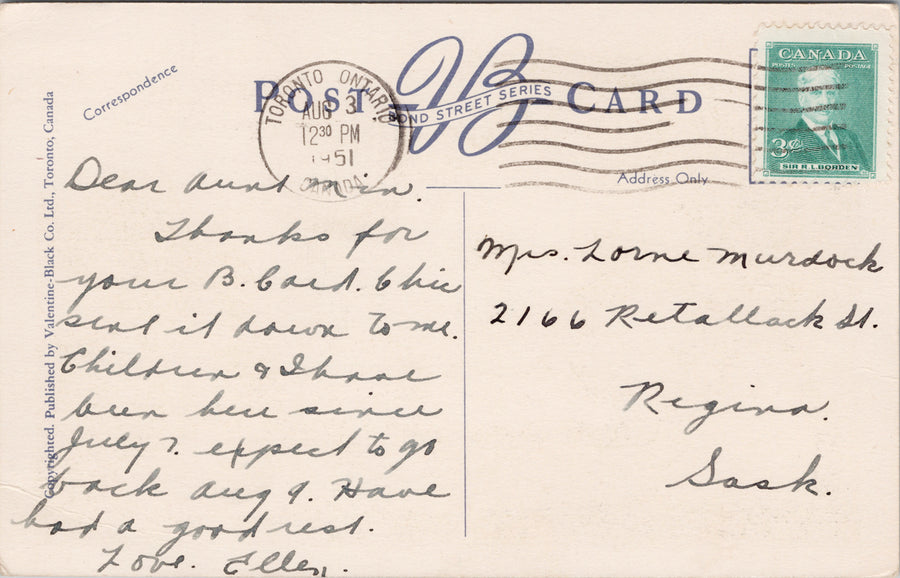 Correspondence
POST CARD
VB
BOND STREET SERIES
TORONTO ONTARIO
AUG 3
12³⁰ PM
1951
CANADA
CANADA
POSTES POSTAGE
3¢
SIR R.L. BORDEN
Address Only
Copyrighted. Published by Valentine-Black Co. Ltd., Toronto, Canada
Dear Aunt Min.
Thanks for
your B. Card. Chic
sent it down to me.
Children & I have
been here since
July 7. expect to go
back Aug 9. Have
had a good rest.
Love. Ellen.
Mrs. Lorne Murdock
2166 Retallack St.
Regina.
Sask.